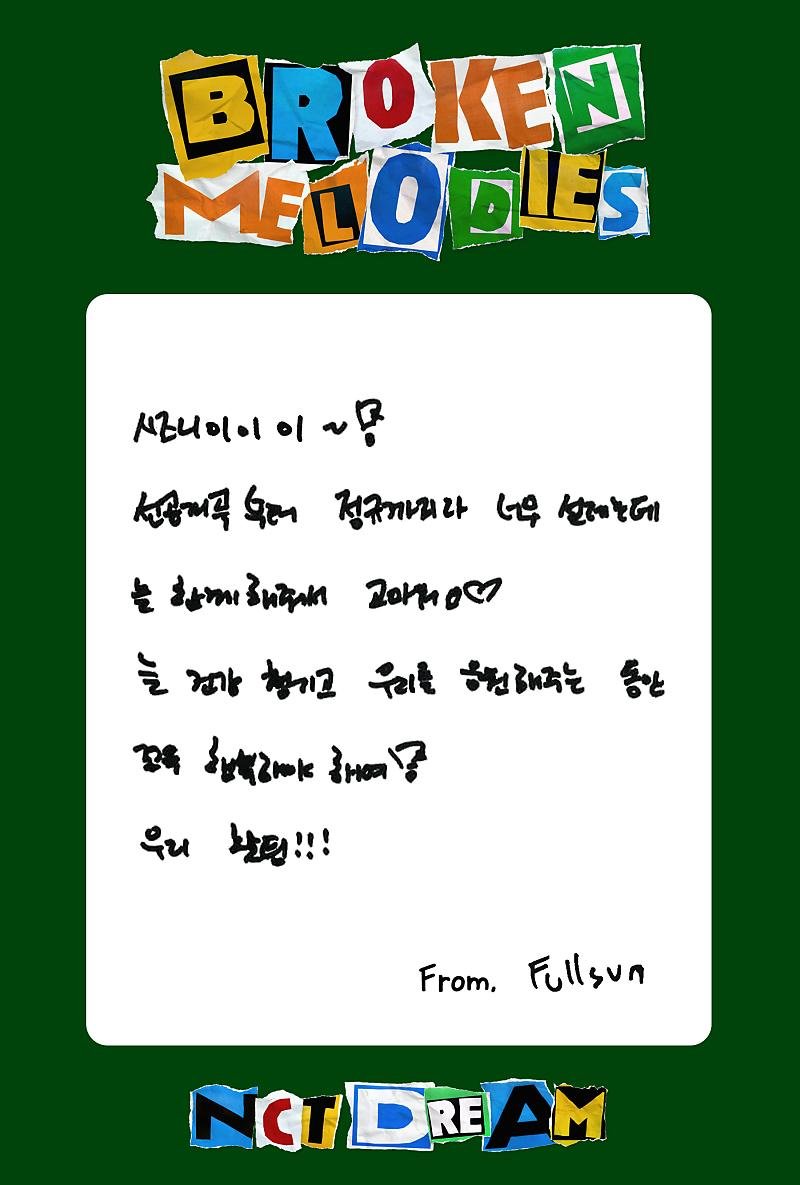 BROKEN
MELODIES
시즈니이이 이 ~
선공개곡 부터 정규까지라 너무 설레는데
늘 함께 해줘서 고마워요♡
늘 건강 챙기고 우리를 응원해주는 동안
꼬옥 행복해야 해여
우리 화팅!!!
From. Fullsun
NCT DREAM